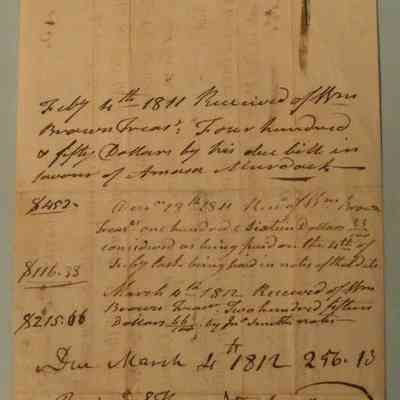 Feby 4th 1811 Received of Wm
Brown Treasr. Four hundred
& fifty Dollars by his due bill in
favour of Amasa Murdock
$452- 19th 1811 Recd of Wm Brown
Treasr one hundred & Sixteen Dollars 33/100
considered as being paid on the 4th of
Feby last being paid in notes of that date
$116.33
March 4th 1812 Received of Wm
Brown Treasr. Two hundred fifteen
$215.66 Dollars 66/100 by Jno Smiths notes
Due March 4th 1812 256.13